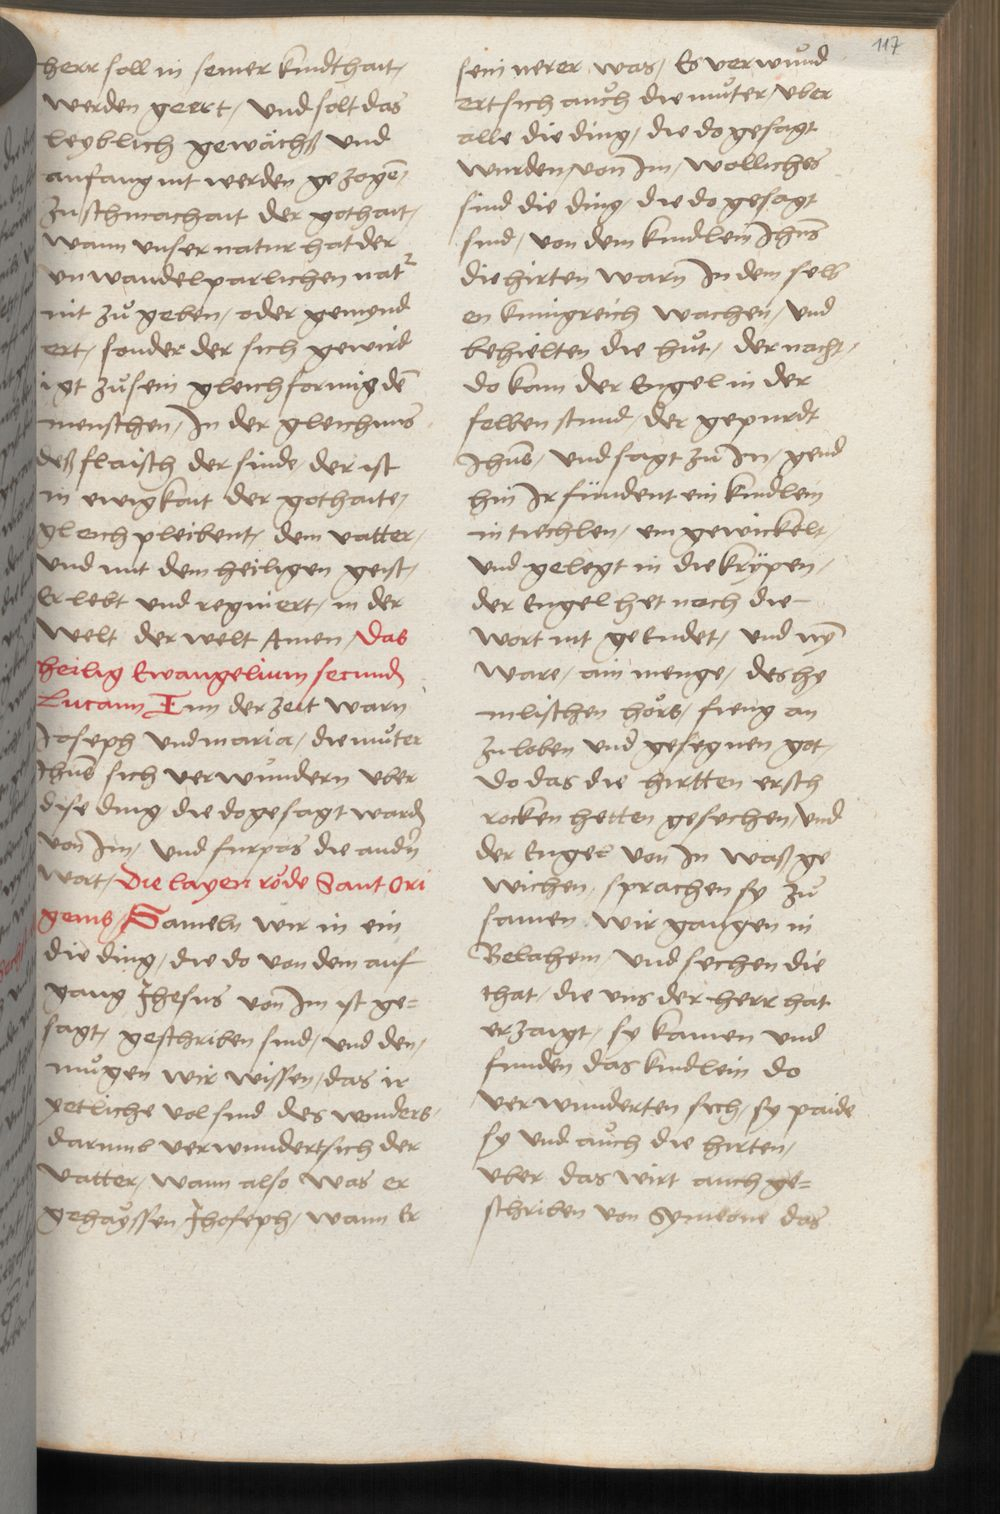 117
herr soll in seiner kindthait /
werden geert / und solt das
leyblich gewächß und
anfang nit werden gezogē /
zu schmachait der gothait /
wann unser natur hat der
unwandelparlichen nat
nit zů geben / oder gemynd
ert / sonder der sich gewird
igt zů sein gleichformig dē
menschen / In der gleichnus
deß flaisch der sinde / der ist
in ewigkait der gothaite /
gleich pleibent / dem vatter /
und mit dem heiligen geist /
Er lebt und regniert / in der
welt der welt Amen / Das
heilig Ewangelium secund
Lucam Inn der zeit warn
Joseph und maria / die můter
Jhūs sich verwundern uber
dise ding die do gesagt ward
von Im / und furpas die andn
wort / Die layen rede Sant Ori
genis / Sameln wir in ein
die ding / die do von dem auf
gang Jhesus von Im ist ge=
sagt / geschriben sind / und den /
můgen wir wissen / das ir
yetliche vol sind des wonders /
darumb verwundert sich der
vatter / wann also was er
gehayssen Jhoseph / wann Er
sein nerer was / Es verwund
ert sich auch die můter / uber
alle die ding / die do gesagt
wurden / von Im / wolliches
sind die ding / die do gesagt
sind / von dem kindlein Jhūs
die hirten warn In dem selb
en kunigreich wachen / und
behielten die hůt / der nacht /
do kam der Engel in der
selben stund / der gepurdt
Jhūs / und sagt zu In / gend
hin Ir findent ein kindlein
in tiechlen / ein gewickelt /
und gelegt in die krÿpen /
der Engel het noch die
wort nit geEndet / und nÿ
ware / ain menge / des he
mlischen hörs / fieng an
zu loben und gesegnen got /
do das die hirtten ersch
rocken hetten gesechen / und
der Engel von In waß ge
wichen / sprachen sy zů
samen wir gangen in
Betlahem / und sechen die
that / die uns der herr hat
erzaigt / sy kamen und
funden das kindlein do
verwunderten sich / sy paide
sy und auch die hirten /
uber das wirt auch ge=
schriben von Symeone das